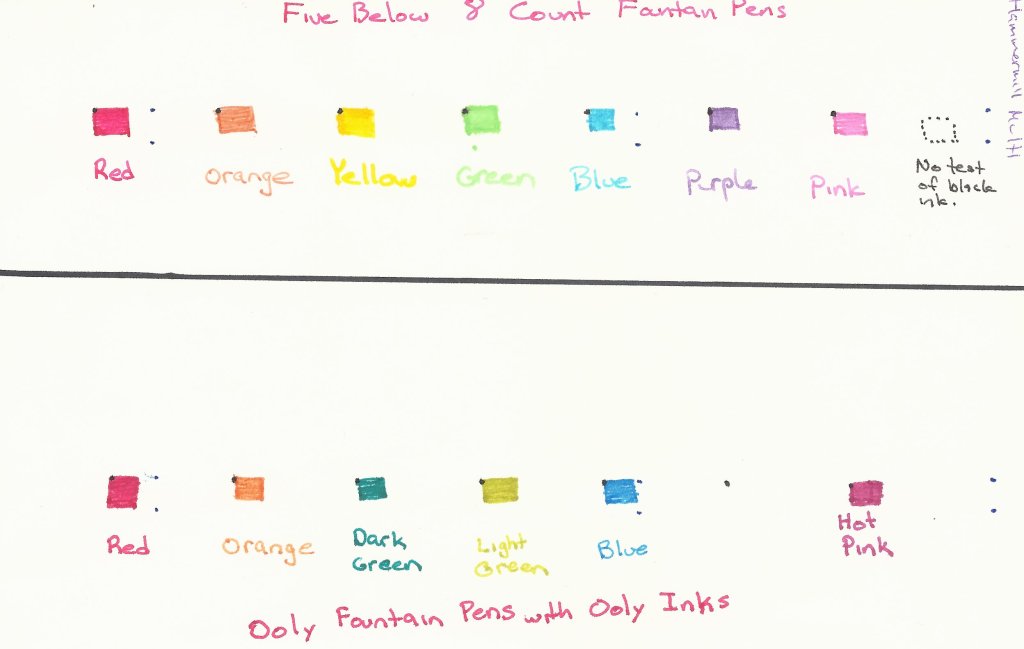 Five Below 8 Count Fountan Pens
Hammermill Multi
Red
Orange
Yellow
Green
Blue
Purple
Pink
No test
of black
ink.
Red
Orange
Dark
Green
Light
Green
Blue
Hot
Pink
Ooly Fountain Pens with Ooly Inks